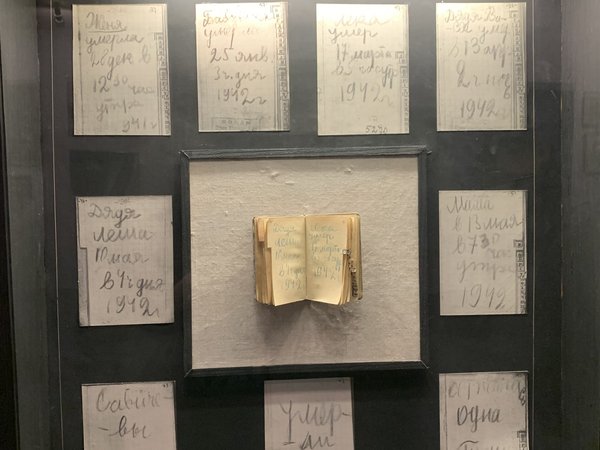 Женя
умерла
28 дек в
12 30 час
утра
1941 г
Бабушка
умерла
25 янв.
3 ч. дня
1942 г
Лека
умер
17 марта
в 5 час утр
1942 г
Дядя Ва-
умер
в 13 апр
2 ч ночь
1942 г
Дядя
Леша
10 мая
в 4 ч дня
1942 г
Лека
умер
1942 г
Мама
в 13 мая
в 7 30
час
утра
1942
Савиче-
-вы
умер-
-ли
одна